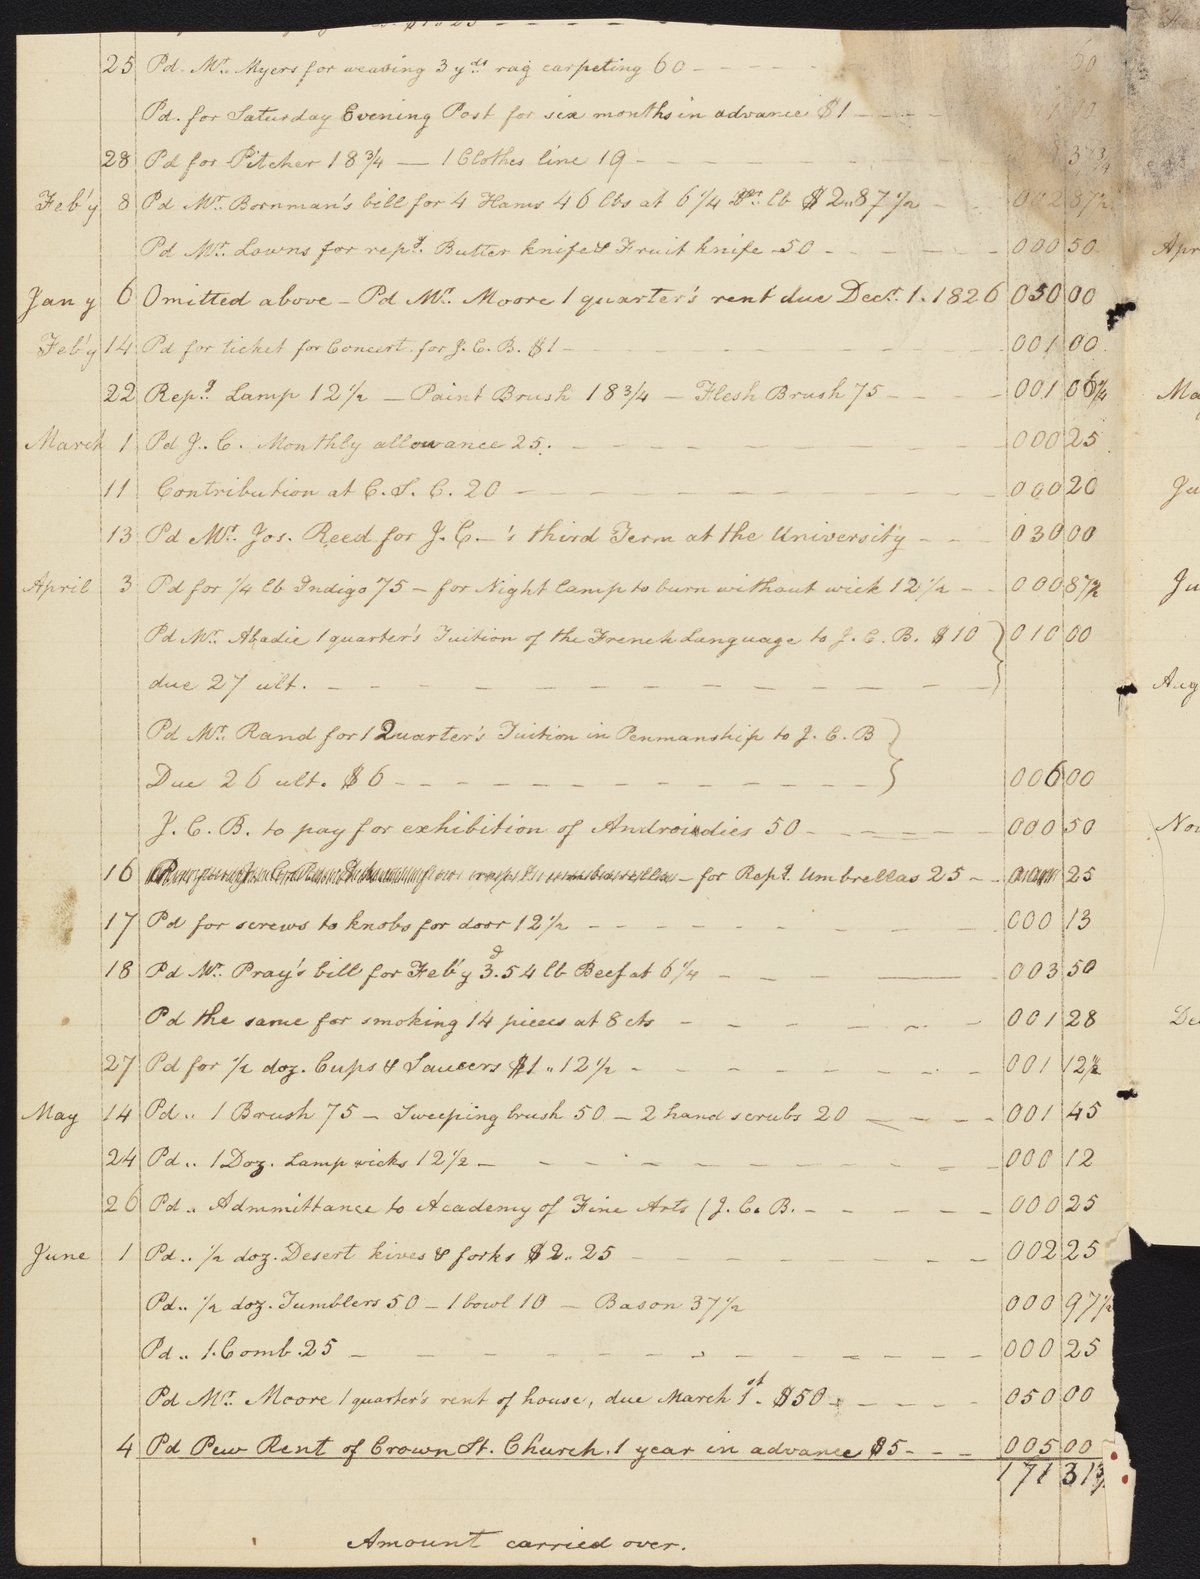 $1023
25 Pd. Mr. Myers for weaving 3 yds rag carpeting 60 60
Pd. for Saturday Evening Post for six months in advance $1
28 Pd for Pitcher 18 3/4 — 1 Clothes line 19 37 3/4
Feb'y 8 Pd Mr. Bornman's bill for 4 Hams 46 lbs at 6 1/4 Pr. lb $2..87 1/2 002 87 1/2
Pd Mr. Lowns for repg. Butter knife & Fruit knife 50 000 50
Jany 6 Omitted above – Pd Mr. Moore 1 quarter's rent due Decr. 1. 1826 050 00
Feb'y 14 Pd for ticket for Concert for J. C. B. $1 001 00
22 Repg. Lamp 12 1/2 — Paint Brush 18 3/4 — Flesh Brush 75 001 06 1/4
March 1 Pd J. C. Monthly allowance 25. 000 25
11 Contribution at C. S. C. 20 000 20
13 Pd Mr. Jos. Reed for J. C. —'s third Term at the University 030 00
April 3 Pd for 1/4 lb Indigo 75 – for Night lamp to burn without wick 12 1/2 000 87 1/2
Pd Mr. Abadie 1 quarter's Tuition of the French Language to J. C. B. $10 010 00
due 27 ult.
Pd Mr. Rand for 1 Quarter's Tuition in Penmanship to J. C. B
Due 26 ult. $6 006 00
J. C. B. to pay for exhibition of Androidies 50 000 50
16 – for Repg. Umbrellas 25 25
17 Pd for screws to knobs for door 12 1/2 000 13
18 Pd Mr. Pray's bill for Feb'y 3d. 54 lb Beef at 6 1/4 003 50
Pd the same for smoking 14 pieces at 8 cts 001 28
27 Pd for 1/2 doz. Cups & Saucers $1..12 1/2 001 12 1/2
May 14 Pd .. 1 Brush 75 – Sweeping brush 50 – 2 hand scrubs 20 001 45
24 Pd .. 1 Doz. Lamp wicks 12 1/2 000 12
26 Pd .. Admmittance to Academy of Fine Arts (J. C. B. 000 25
June 1 Pd .. 1/2 doz. Desert kives & forks $2..25 002 25
Pd .. 1/2 doz. Tumblers 50 – 1 bowl 10 – Bason 37 1/2 000 97 1/2
Pd .. 1. Comb. 25 000 25
Pd Mr. Moore 1 quarter's rent of house, due March 1st. $50 050 00
4 Pd Pew Rent of Crown St. Church. 1 year in advance $5 005 00
171 31 3/4
Amount carried over.
Apr
Ma
Ju
Ju
Aug
Nov
De